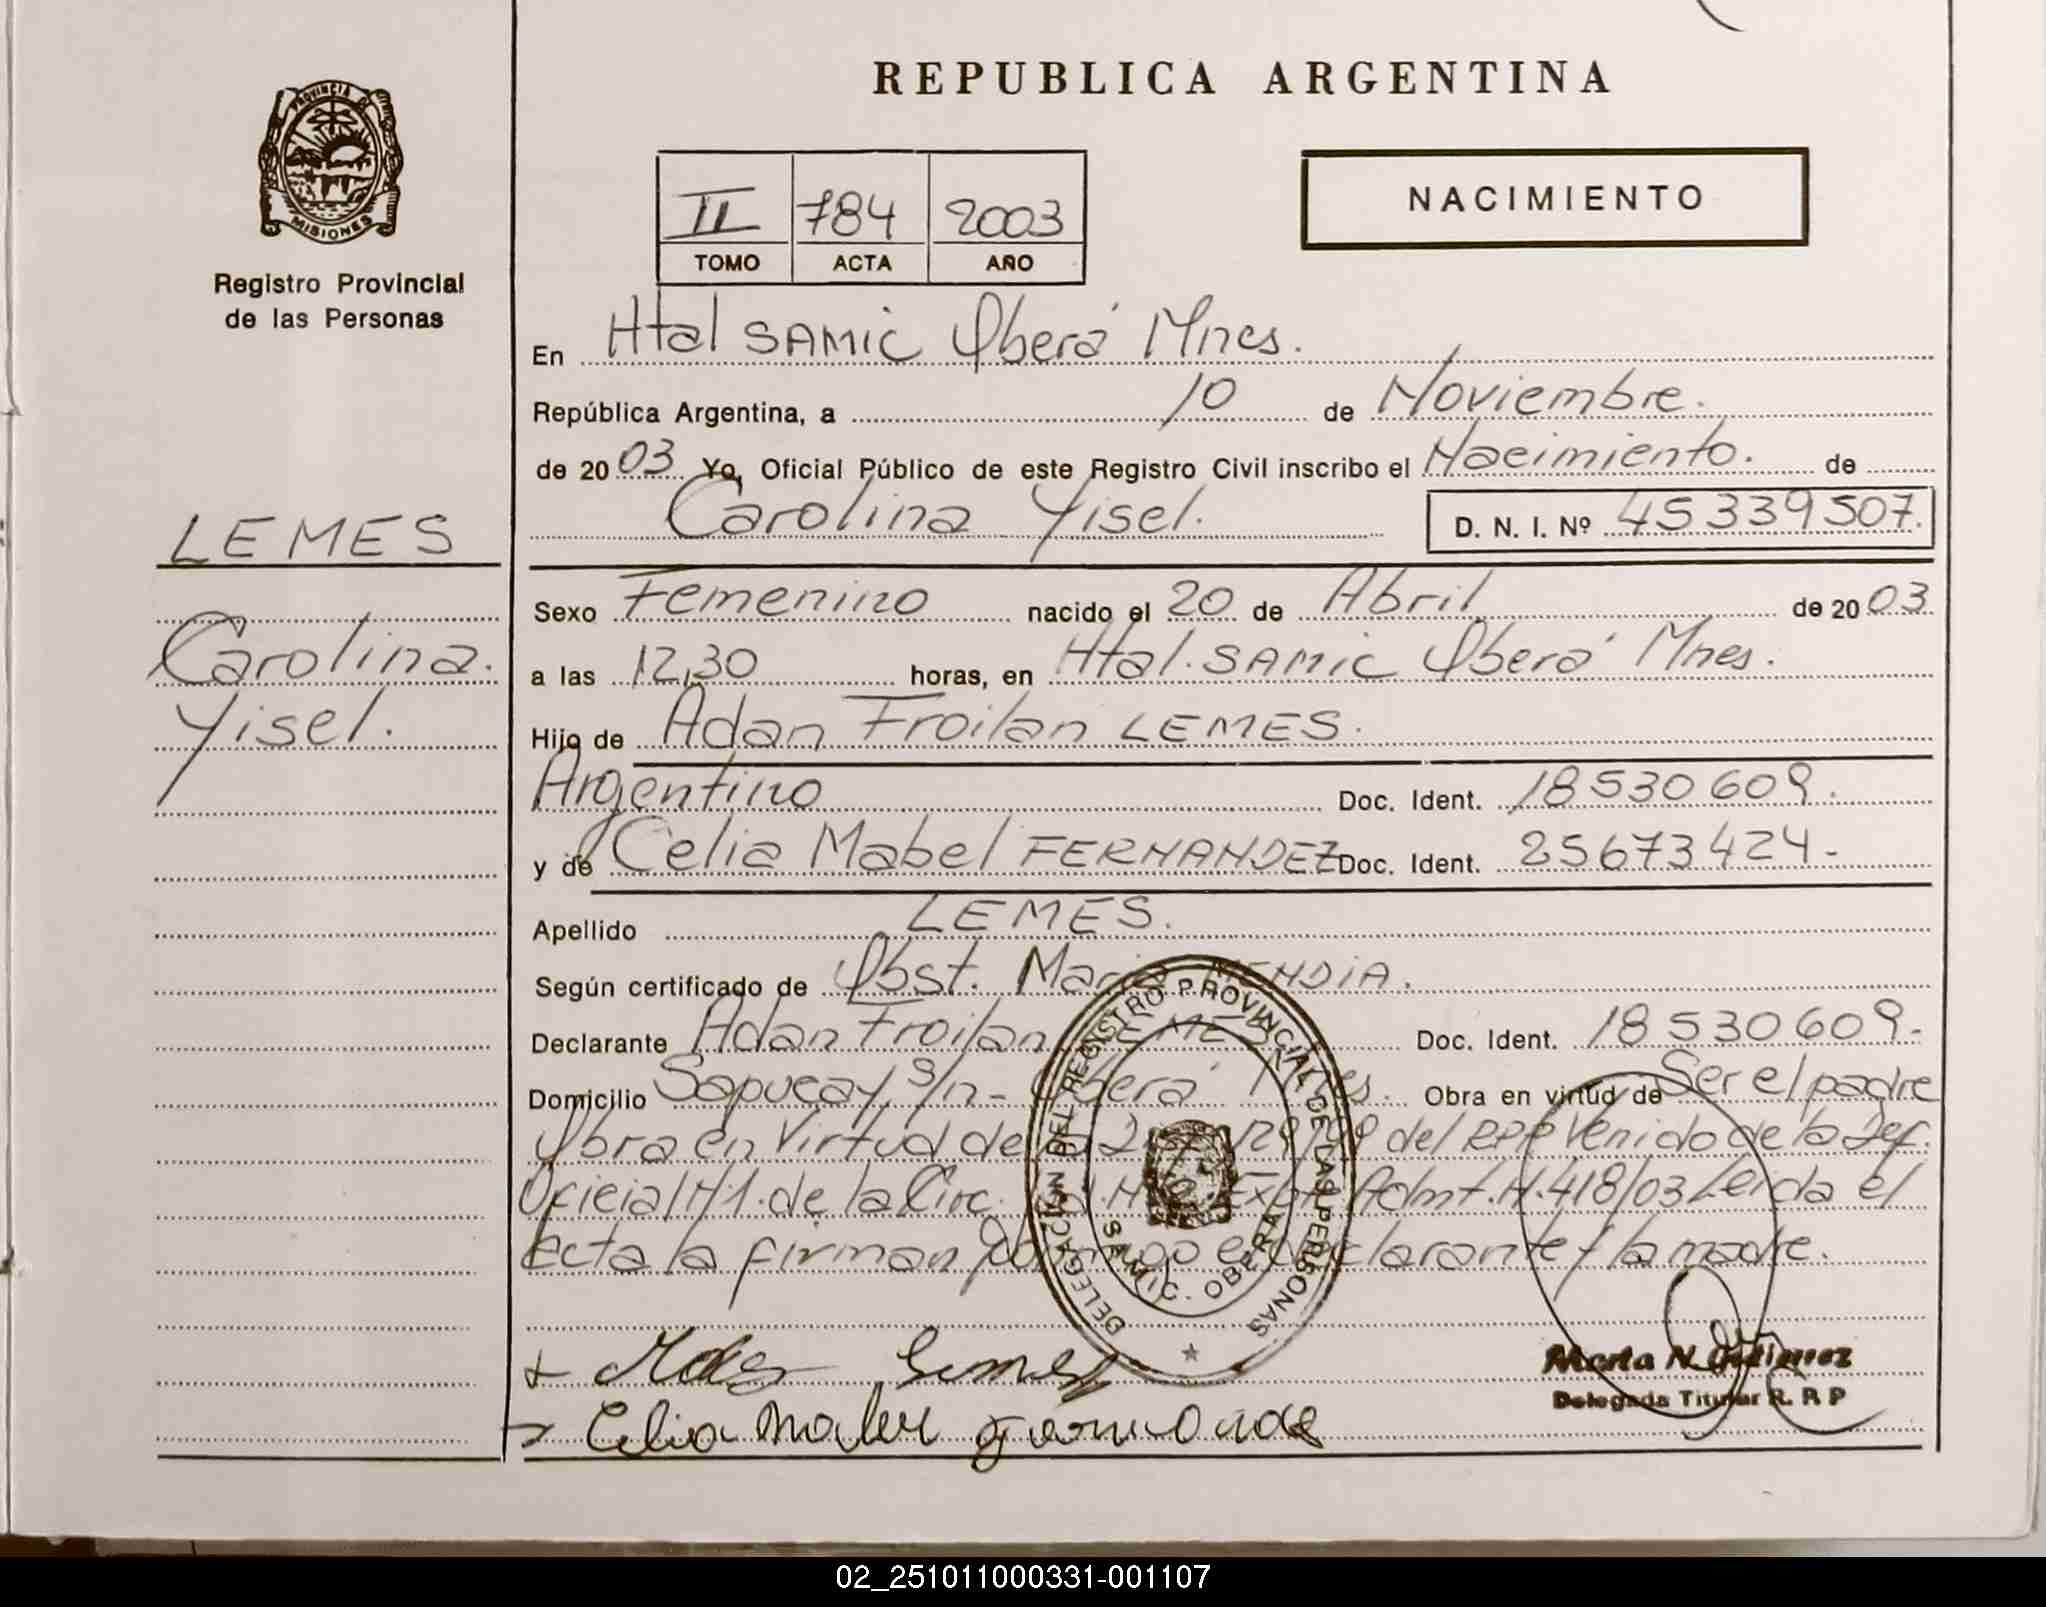 PROVINCIA DE
MISIONES
Registro Provincial
de las Personas
LEMES
Carolina.
Yisel.
REPUBLICA ARGENTINA
II 784 2003
TOMO ACTA AÑO
NACIMIENTO
En Htal SAMIC Oberá Mnes.
República Argentina, a 10 de Noviembre.
de 2003. Yo, Oficial Público de este Registro Civil inscribo el Nacimiento. de
Carolina Yisel. D. N. I. Nº 45339507.
Sexo Femenino nacido el 20 de Abril de 2003
a las 12,30 horas, en Htal. SAMIC Oberá Mnes.
Hijo de Adan Froilan LEMES.
Argentino Doc. Ident. 18530609.
y de Celia Mabel FERNANDEZ Doc. Ident. 25673424-
Apellido LEMES.
Según certificado de Obst. Maria MENDIA.
Declarante Adan Froilan LEMES Doc. Ident. 18530609.-
Domicilio Sapucay, s/n- Oberá Mnes. Obra en virtud de Ser el padre
Obra en Virtud de la del RPP Venido de la Def.
Oficial N1. de la Circ. Admt. N. 418/03 Leida el
acta la firman el declarante y la madre.
DELEGACION DEL REGISTRO PROVINCIAL DE LAS PERSONAS
SAMIC. OBERA
Lemes
Celia Mabel
Marta N.
Delegada Titular R. P. P
02_251011000331-001107